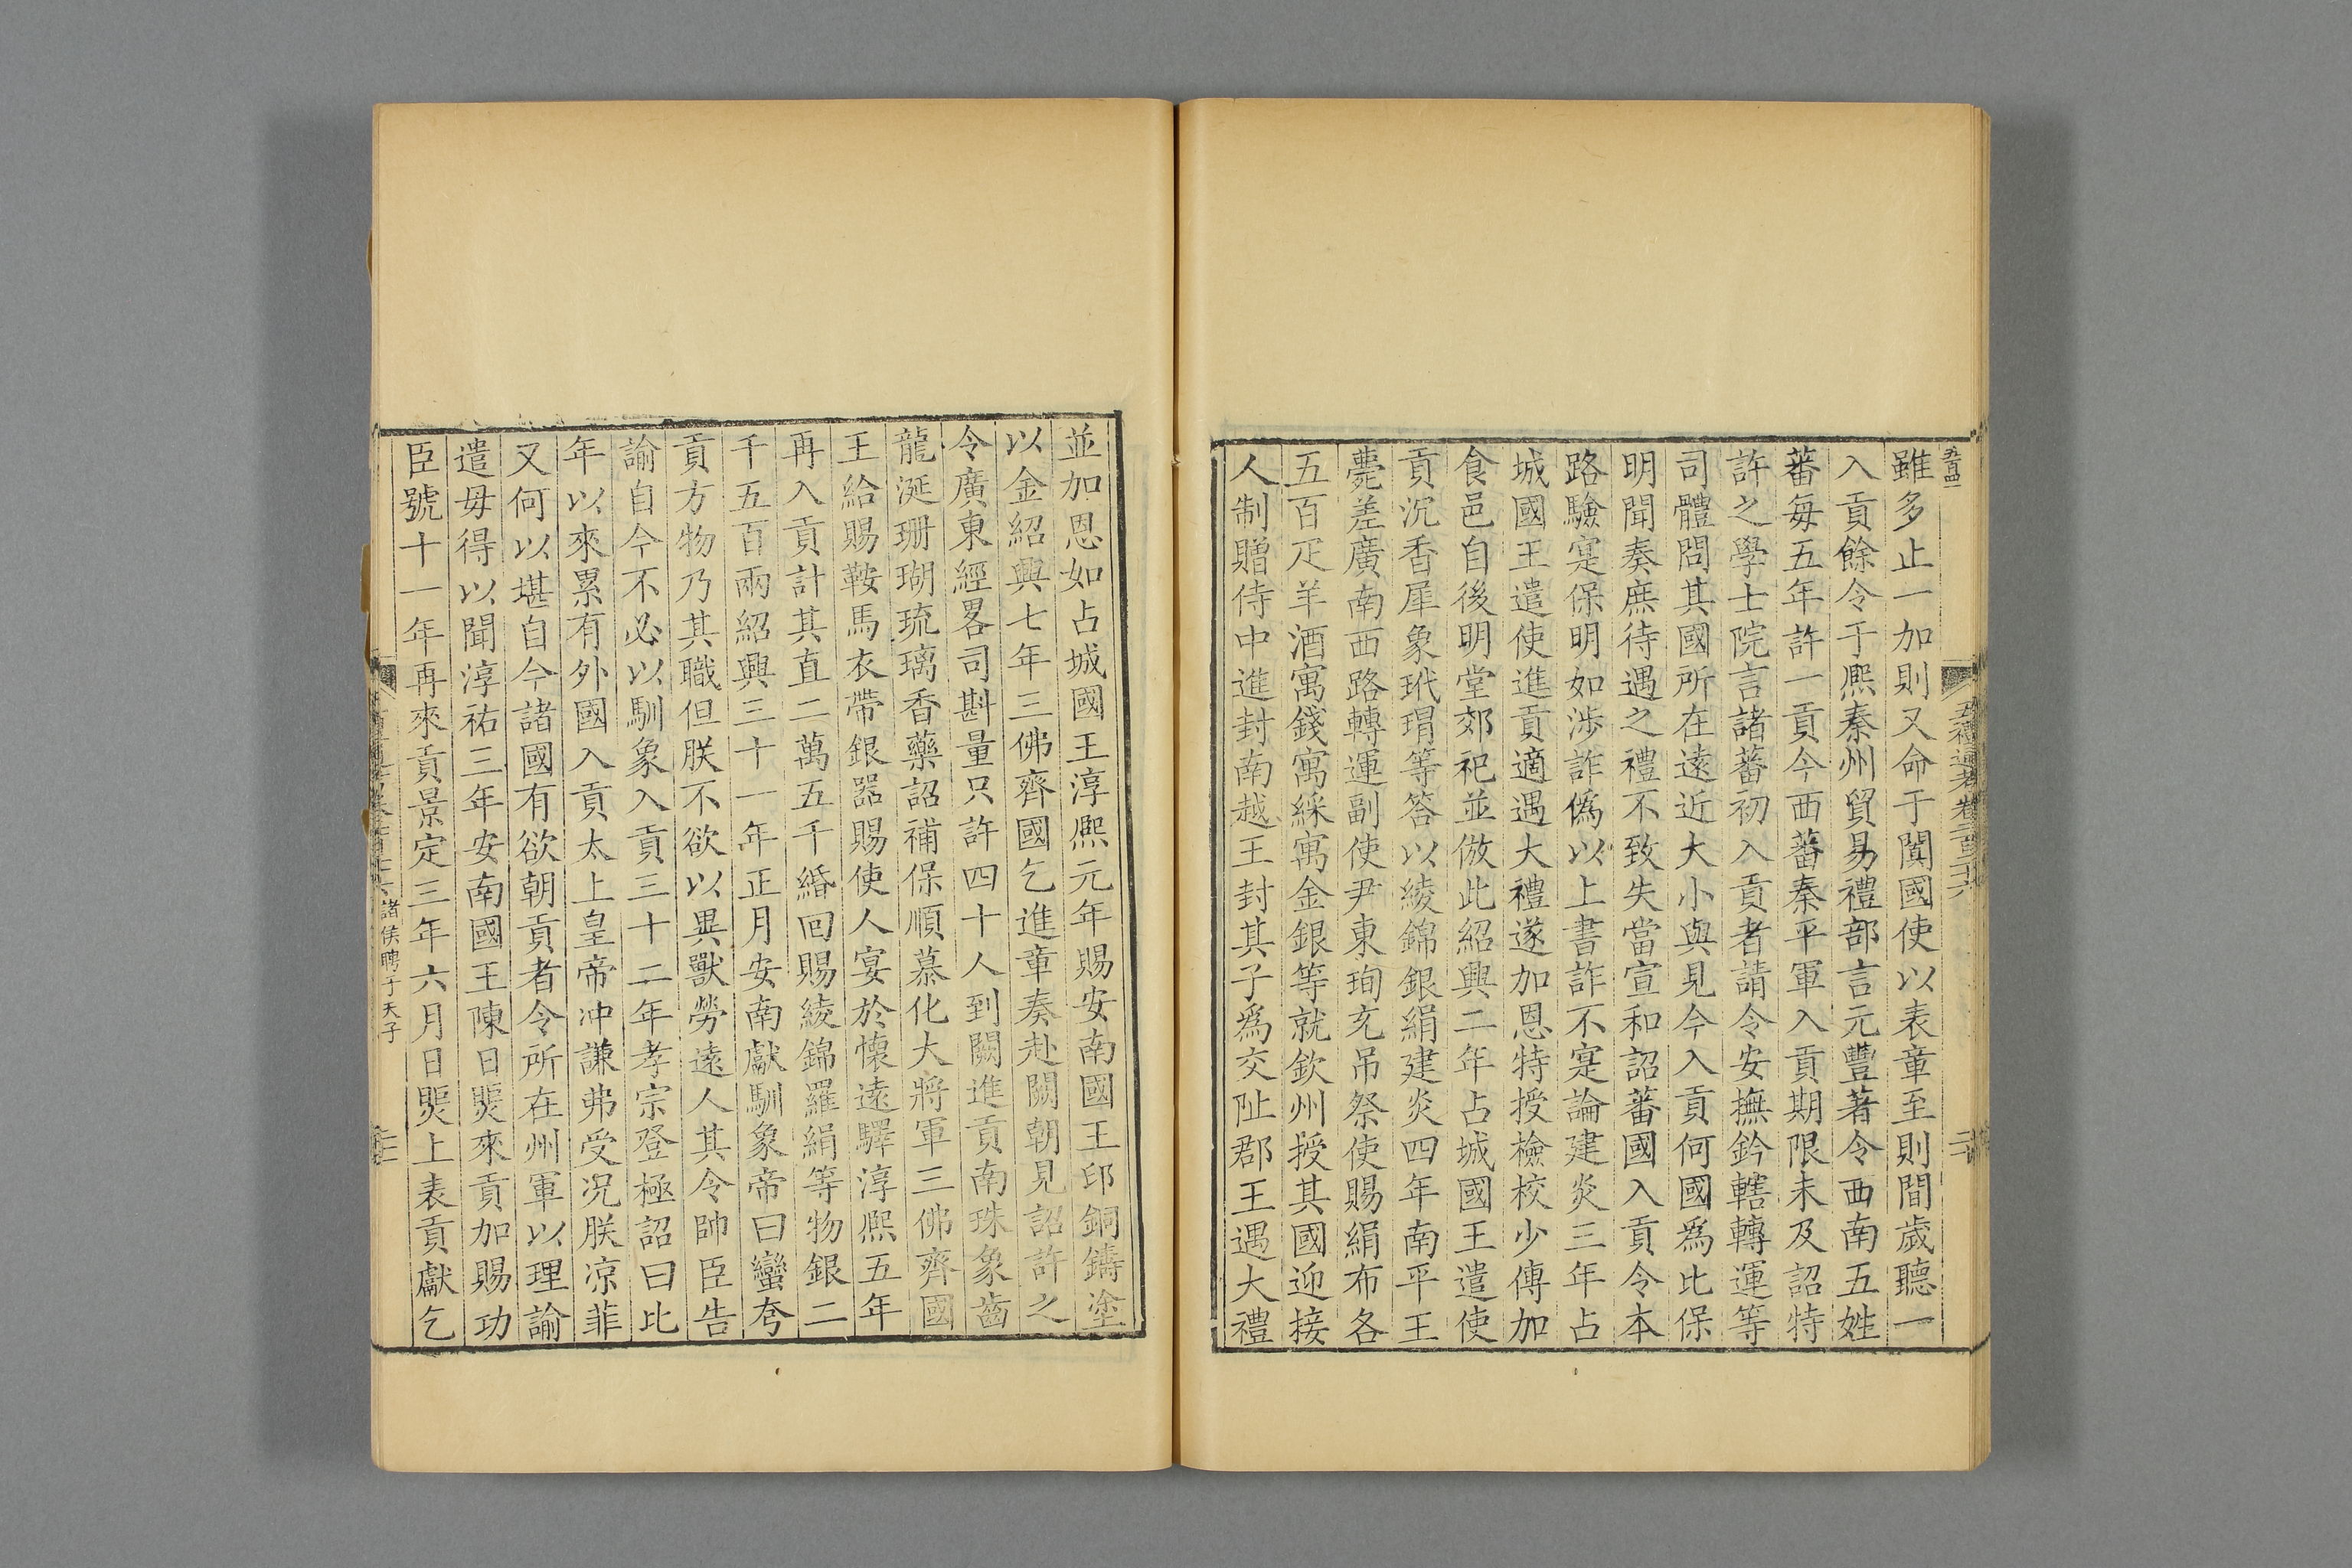 五百四一
五禮通考卷二百二十六
雖多止一加則又命于闐國使以表章至則間歲聽一
入貢餘令于熈秦州貿易禮部言元豐著令西南五姓
蕃每五年許一貢今西蕃秦平軍入貢期限未及詔特
許之學士院言諸蕃初入貢者請令安撫鈐轄轉運等
司體問其國所在遠近大小與見今入貢何國爲比保
明聞奏庶待遇之禮不致失當宣和詔蕃國入貢令本
路驗寔保明如涉詐僞以上書詐不寔論建炎三年占
城國王遣使進貢適遇大禮遂加恩特授檢校少傅加
食邑自後明堂郊祀並倣此紹興二年占城國王遣使
貢沉香犀象玳瑁等答以綾錦銀絹建炎四年南平王
薨差廣南西路轉運副使尹東珣充吊祭使賜絹布各
五百疋羊酒寓錢寓綵寓金銀等就欽州授其國迎接
人制贈侍中進封南越王封其子爲交阯郡王遇大禮
並加恩如占城國王淳熈元年賜安南國王印銅鑄塗
以金紹興七年三佛齊國乞進章奏赴闕朝見詔許之
令廣東經畧司斟量只許四十人到闕進貢南珠象齒
龍涎珊瑚琉璃香藥詔補保順慕化大將軍三佛齊國
王給賜鞍馬衣帶銀器賜使人宴於懷遠驛淳熈五年
再入貢計其直二萬五千緡回賜綾錦羅絹等物銀二
千五百兩紹興三十一年正月安南獻馴象帝曰蠻夸
貢方物乃其職但朕不欲以異獸勞遠人其令帥臣告
諭自今不必以馴象入貢三十二年孝宗登極詔曰比
年以來累有外國入貢太上皇帝冲謙弗受况朕凉菲
又何以堪自今諸國有欲朝貢者令所在州軍以理諭
遣毋得以聞淳祐三年安南國王陳日煚來貢加賜功
臣號十一年再來貢景定三年六月日煚上表貢獻乞
諸侯聘于天子